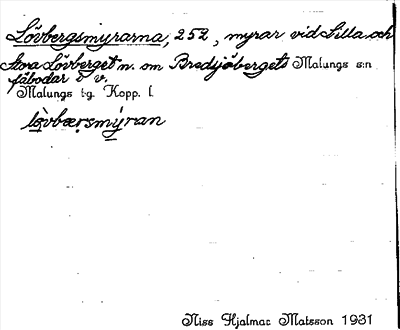 Lövbergsmyrarna, 252, myrar vid Lilla och
Stora Lövberget n. om Bredsjöbergets Malungs s:n
fäbodar o v.
Malungs tg. Kopp. l.
lövbærsmýran
Niss Hjalmar Matsson 1931